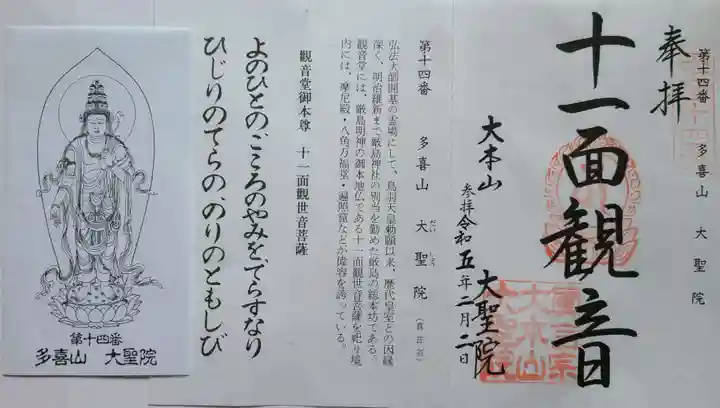 第十四番 多喜山 大聖院
奉拝
十一面観音
大本山 大聖院
参拝令和五年二月二日
第十四番 多喜山 大聖院(真言宗)
だい しょう
弘法大師開基の霊場にして、鳥羽天皇勅願以来、歴代皇室との因縁
深く、明治維新まで厳島神社の別当を勤めた厳島の総本坊である。
観音堂には、厳島明神の御本地仏である十一面観世音菩薩を祀り境
内には、摩尼殿・八角万福堂・遍照窟などが偉容を誇っている。
観音堂御本尊 十一面観世音菩薩
よのひとのこころのやみを、てらすなり
ひじりのてらの、のりのともしび
第十四番
多喜山 大聖院